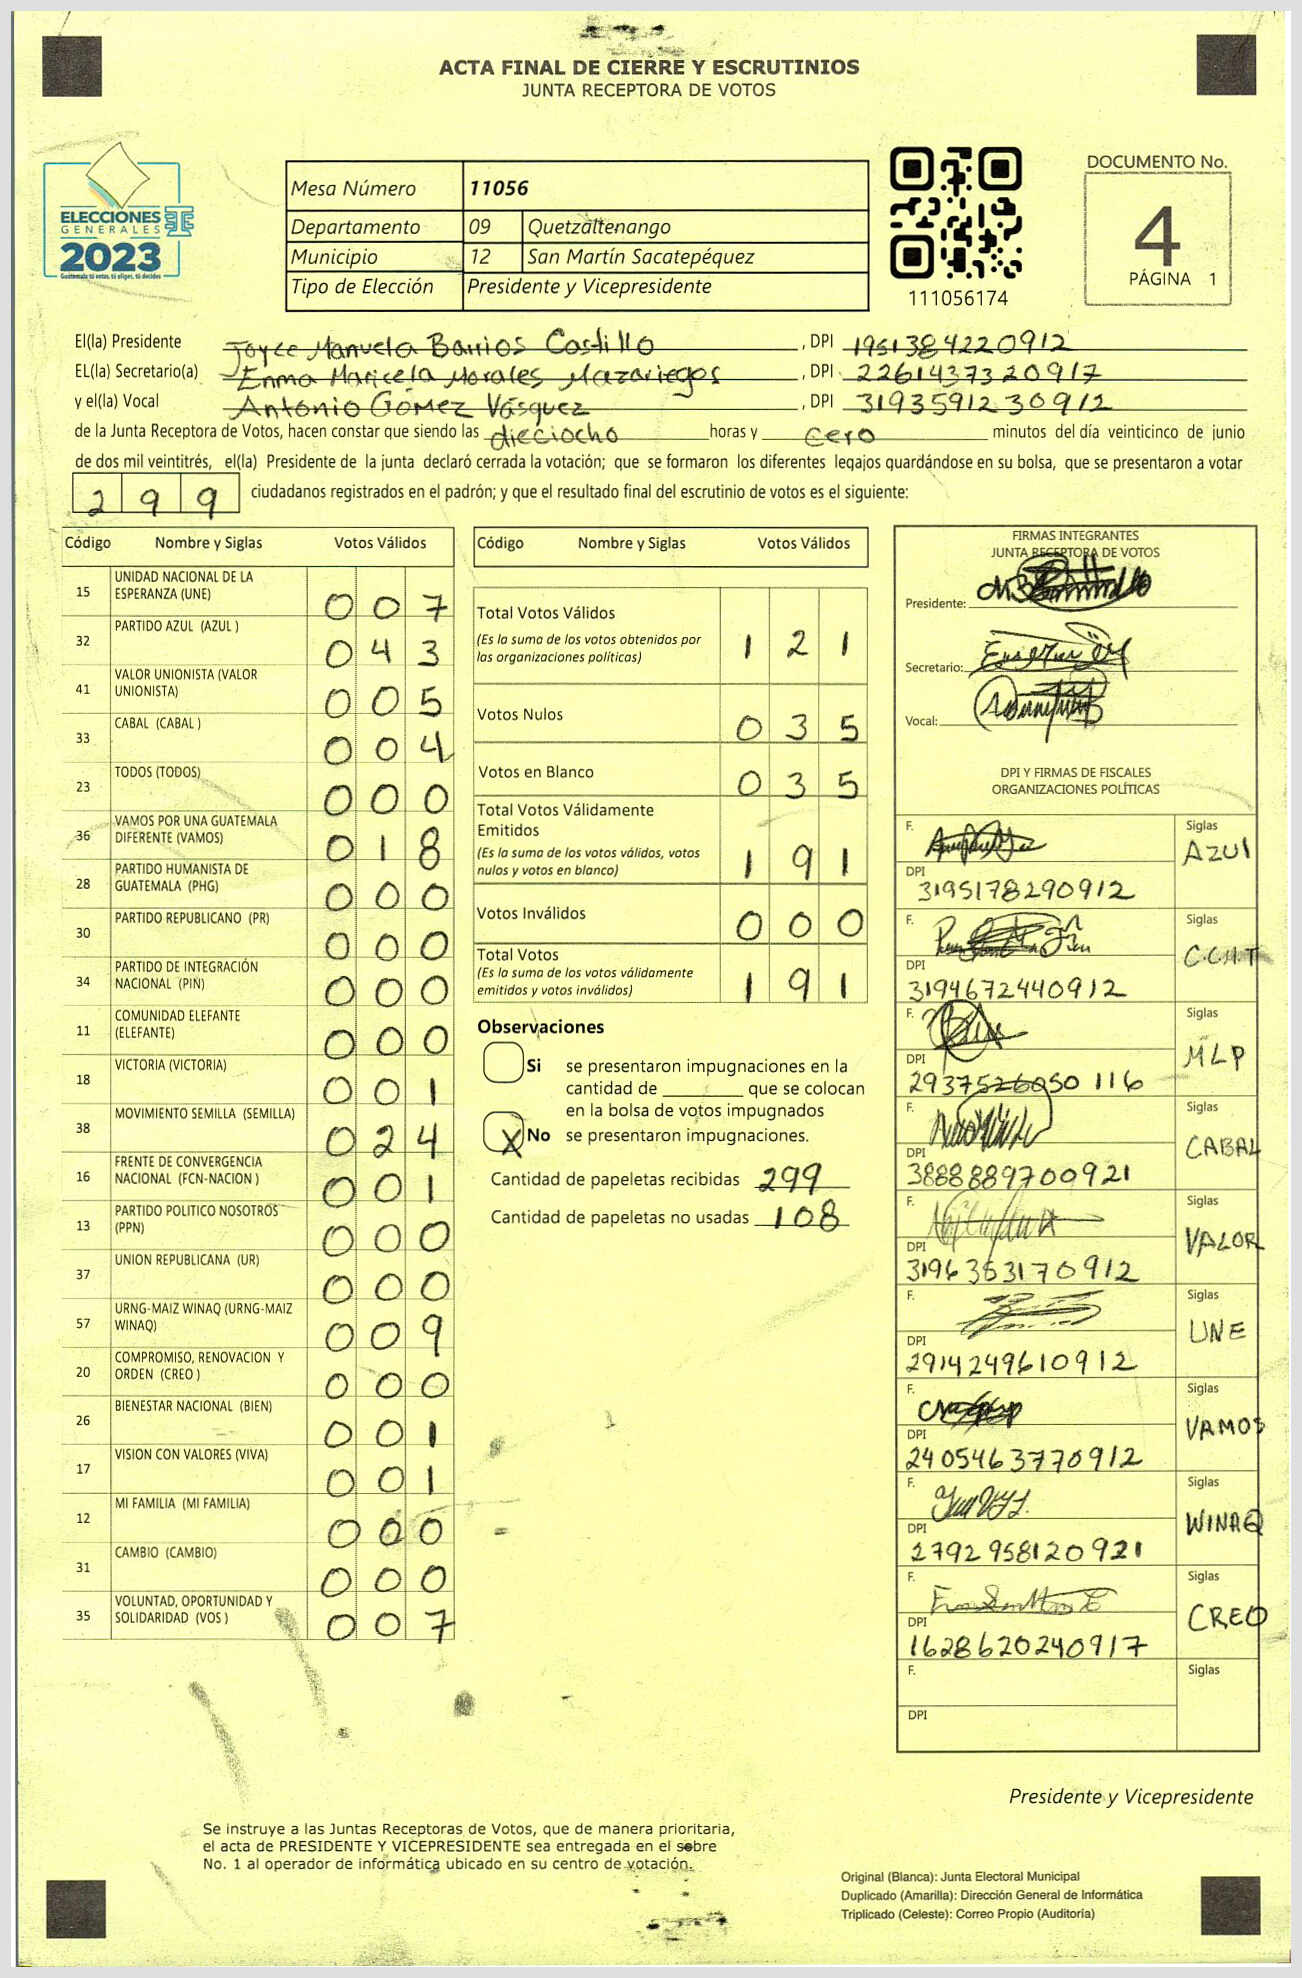 ACTA FINAL DE CIERRE Y ESCRUTINIOS
JUNTA RECEPTORA DE VOTOS
ELECCIONES
GENERALES
2023
Guatemala tú votas, tú eliges, tú decides
Mesa Número 11056
Departamento 09 Quetzaltenango
Municipio 12 San Martín Sacatepéquez
Tipo de Elección Presidente y Vicepresidente
111056174
DOCUMENTO No.
4
PÁGINA 1
El(la) Presidente Joyce Manuela Barrios Castillo, DPI 1951384220912
EL(la) Secretario(a) Enma Maricela Morales Mazariegos, DPI 2261437320917
y el(la) Vocal Antonio Gómez Vásquez, DPI 3193591230912
de la Junta Receptora de Votos, hacen constar que siendo las dieciocho horas y cero minutos del día veinticinco de junio
de dos mil veintitrés, el(la) Presidente de la junta declaró cerrada la votación; que se formaron los diferentes legajos guardándose en su bolsa, que se presentaron a votar
299 ciudadanos registrados en el padrón; y que el resultado final del escrutinio de votos es el siguiente:
Código Nombre y Siglas Votos Válidos
15 UNIDAD NACIONAL DE LA ESPERANZA (UNE) 007
32 PARTIDO AZUL (AZUL ) 043
41 VALOR UNIONISTA (VALOR UNIONISTA) 005
33 CABAL (CABAL ) 004
23 TODOS (TODOS) 000
36 VAMOS POR UNA GUATEMALA DIFERENTE (VAMOS) 018
28 PARTIDO HUMANISTA DE GUATEMALA (PHG) 000
30 PARTIDO REPUBLICANO (PR) 000
34 PARTIDO DE INTEGRACIÓN NACIONAL (PIN) 000
11 COMUNIDAD ELEFANTE (ELEFANTE) 000
18 VICTORIA (VICTORIA) 001
38 MOVIMIENTO SEMILLA (SEMILLA) 024
16 FRENTE DE CONVERGENCIA NACIONAL (FCN-NACION ) 001
13 PARTIDO POLITICO NOSOTROS (PPN) 000
37 UNION REPUBLICANA (UR) 000
57 URNG-MAIZ WINAQ (URNG-MAIZ WINAQ) 009
20 COMPROMISO, RENOVACION Y ORDEN (CREO ) 000
26 BIENESTAR NACIONAL (BIEN) 001
17 VISION CON VALORES (VIVA) 001
12 MI FAMILIA (MI FAMILIA) 000
31 CAMBIO (CAMBIO) 000
35 VOLUNTAD, OPORTUNIDAD Y SOLIDARIDAD (VOS ) 007
Código Nombre y Siglas Votos Válidos
Total Votos Válidos 121
(Es la suma de los votos obtenidos por
las organizaciones políticas)
Votos Nulos 035
Votos en Blanco 035
Total Votos Válidamente
Emitidos 191
(Es la suma de los votos válidos, votos
nulos y votos en blanco)
Votos Inválidos 000
Total Votos 191
(Es la suma de los votos válidamente
emitidos y votos inválidos)
Observaciones
Si se presentaron impugnaciones en la
cantidad de ________ que se colocan
en la bolsa de votos impugnados
X No se presentaron impugnaciones.
Cantidad de papeletas recibidas 299
Cantidad de papeletas no usadas 108
FIRMAS INTEGRANTES
JUNTA RECEPTORA DE VOTOS
Presidente:
Secretario:
Vocal:
DPI Y FIRMAS DE FISCALES
ORGANIZACIONES POLÍTICAS
F. Siglas AZUL
DPI 3195178290912
F. Siglas C.C.M.T
DPI 3194672440912
F. Siglas MLP
DPI 2937526050116
F. Siglas CABAL
DPI 3888889700921
F. Siglas VALOR
DPI 3196353170912
F. Siglas UNE
DPI 2914249610912
F. Siglas VAMOS
DPI 2405463770912
F. Siglas WINAQ
DPI 2792958120921
F. Siglas CREO
DPI 1628620240917
F. Siglas
DPI
Presidente y Vicepresidente
Se instruye a las Juntas Receptoras de Votos, que de manera prioritaria,
el acta de PRESIDENTE Y VICEPRESIDENTE sea entregada en el sobre
No. 1 al operador de informática ubicado en su centro de votación.
Original (Blanca): Junta Electoral Municipal
Duplicado (Amarilla): Dirección General de Informática
Triplicado (Celeste): Correo Propio (Auditoría)